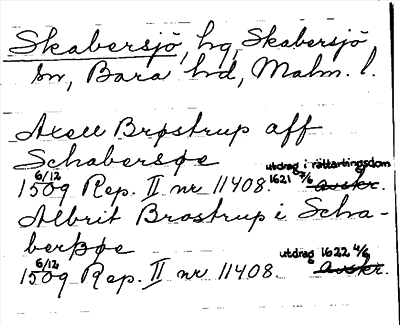 Skabersjö, hg, Skabersjö
sn, Bara hd, Malm. l.
Axell Brøstrup aff
Schabersøe
6/12 1509 Rep. II nr 11408. utdrag i rättartingsdom 1621 7/6 avskr.
Albrit Brostrup i Scha-
berþøe
6/12 1509 Rep. II nr 11408. utdrag 1622 4/6 avskr.